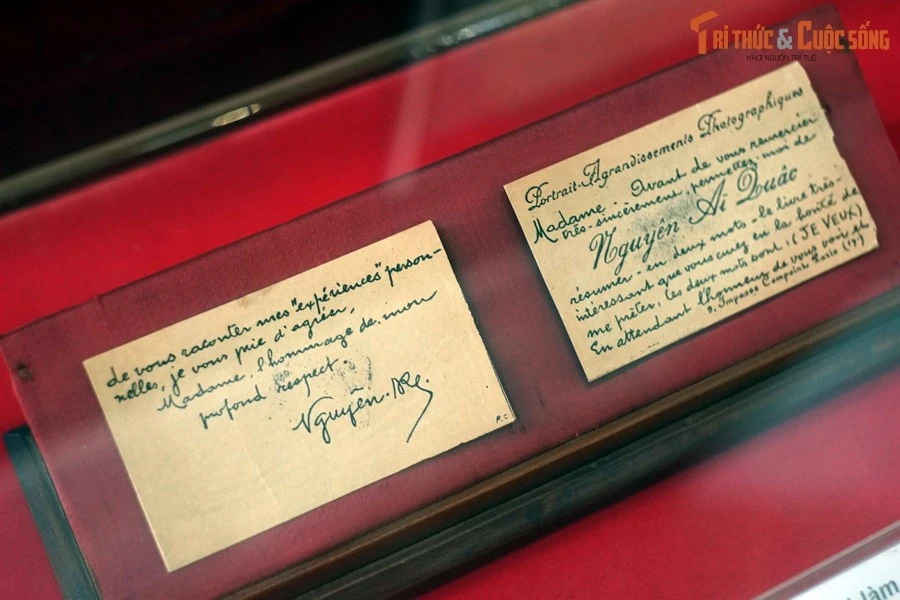 TRI THỨC & CUỘC SỐNG
KHƠI NGUỒN TRI TUỆ
Portrait-Agrandissements Photographiques
Madame. Avant de vous remercier
très-sincèrement, permettez-moi de
Nguyên Aï Quâc
résumer - en deux mots - le livre très-
intéressant que vous avez eu la bonté de
me prêter. Les deux mots sont: (JE VEUX)
En attendant l'honneur de vous voir et
9, Impasse Compoint Paris (17)
de vous raconter mes "expériences" person-
nelles, je vous prie d'agréer,
Madame, l'hommage de mon
profond respect.
Nguyễn
làm